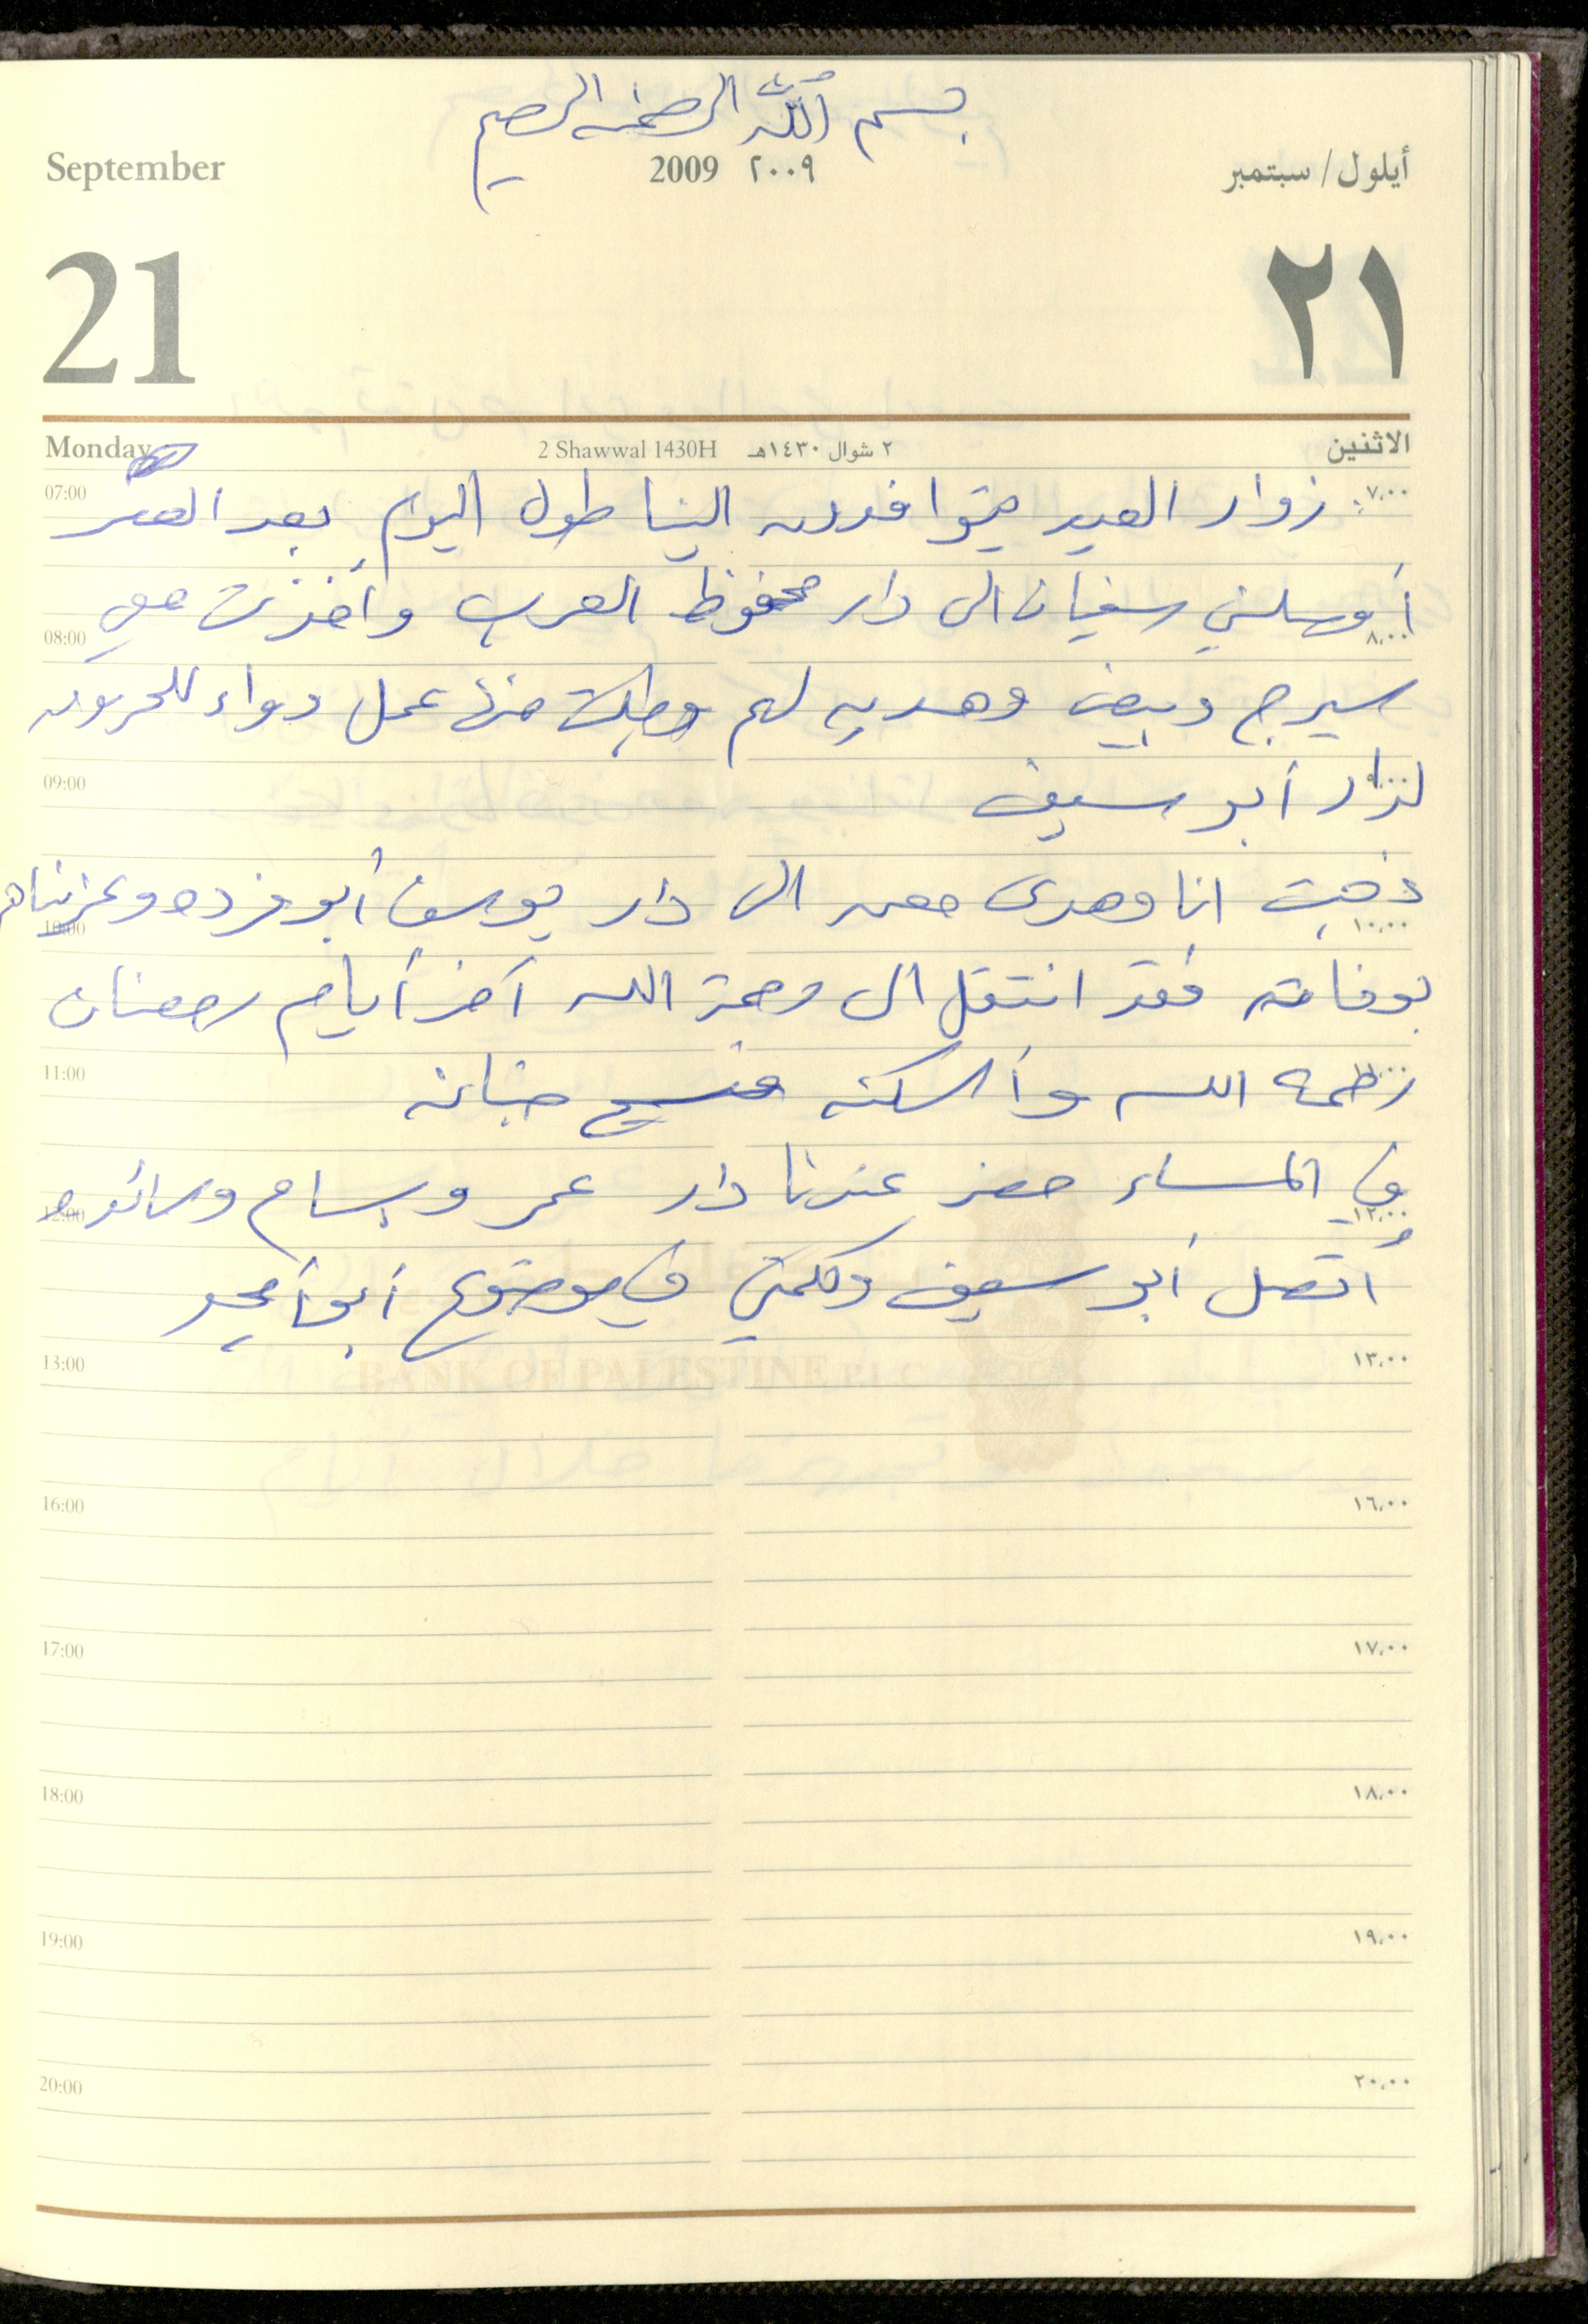 بسم الله الرحمن الرحيم
September 2009 ٢٠٠٩ أيلول / سبتمبر
21 ٢١
Monday 2 Shawwal 1430H ٢ شوال ١٤٣٠هـ الاثنين
07:00 زوار العيد يتوافدون الينا طول اليوم بعد العصر ٧,٠٠
أوصلني سفيان الى دار محفوظ العرب وأخذت معي
08:00 ٨,٠٠
سيرج وبيض وهديه لهم وطلبت منها عمل دواء للحروق
09:00 لنزار أبو سيف
ذهبت انا وهدى معه الى دار يوسف أبو فرده وعزيناهم
10:00 ١٠,٠٠
بوفاته فقد انتقل الى رحمة الله آخر أيام رمضان
11:00 رحمه الله وأسكنه فسيح جنانه
في المساء حضر عندنا دار عمر وبسام
12:00 ١٢,٠٠
أتصل أبو سيف وكلمني في موضوع أبو أمجد
BANK OF PALESTINE P.L.C
13:00 ١٣,٠٠
16:00 ١٦,٠٠
17:00 ١٧,٠٠
18:00 ١٨,٠٠
19:00 ١٩,٠٠
20:00 ٢٠,٠٠